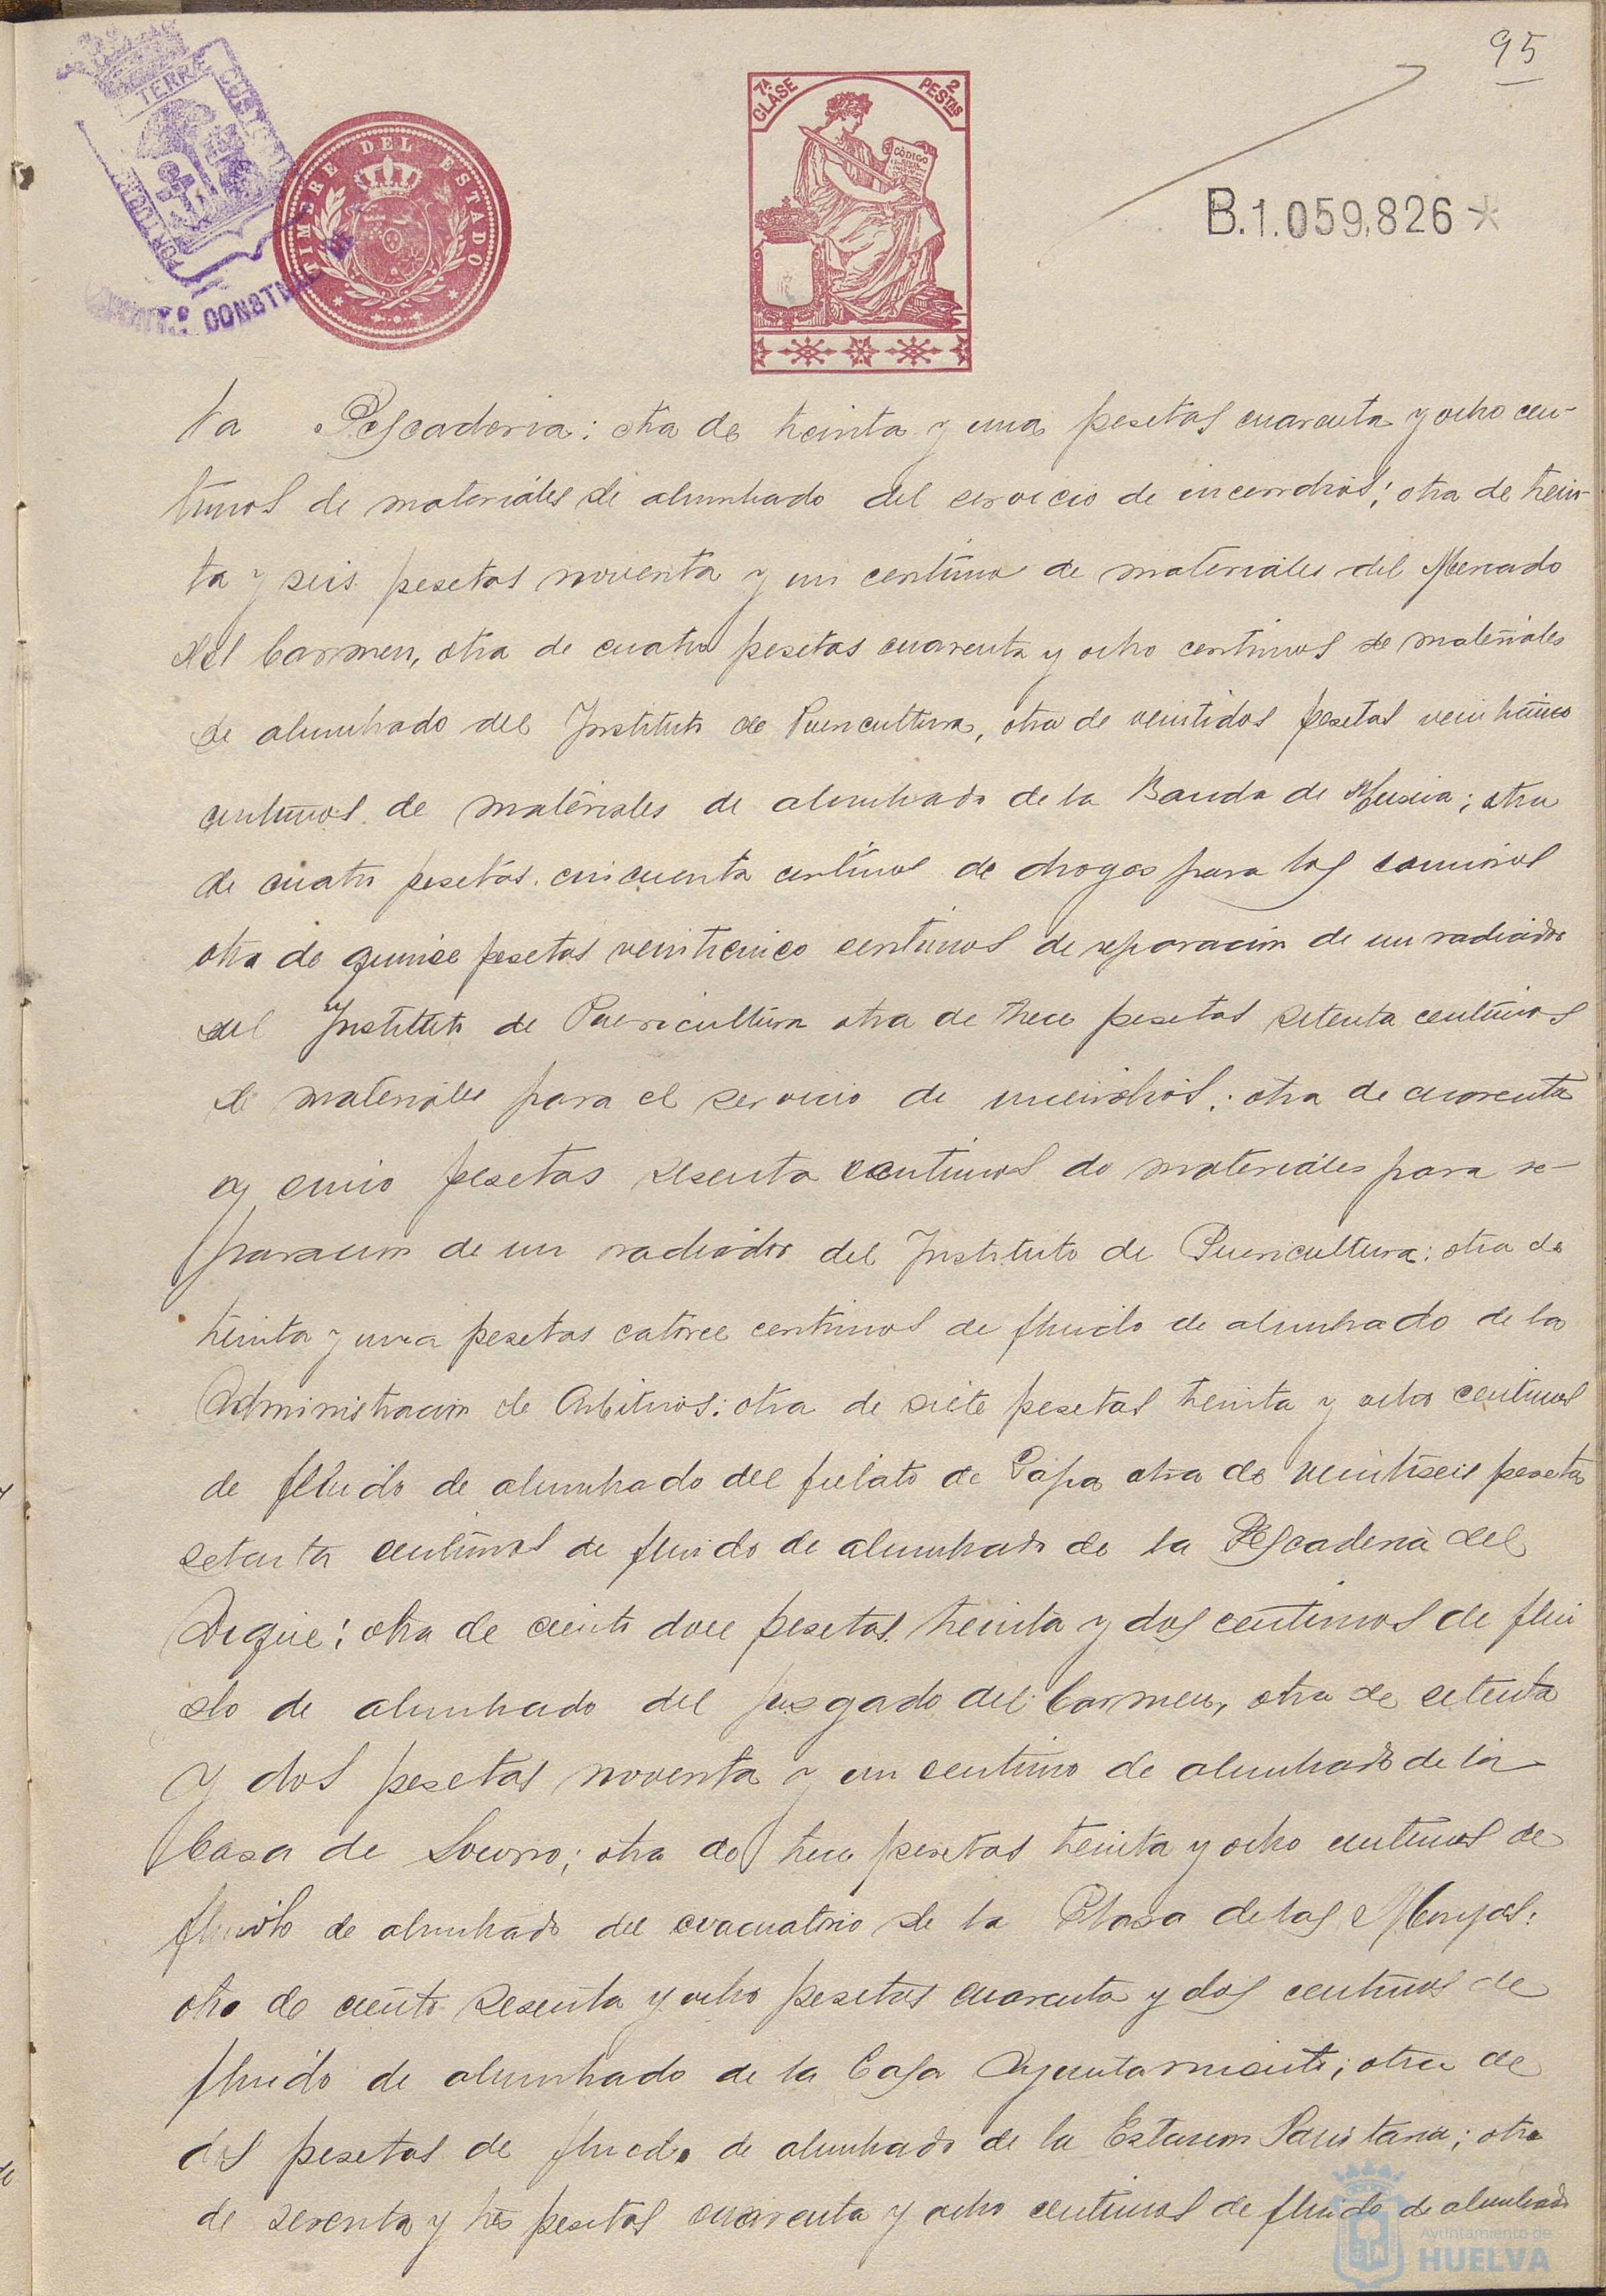 95
TERRE CUSTODIA
PORTUS
AYUNT.º CONSTNAL DE
TIMBRE DEL ESTADO
7ª CLASE
2 PESTAS
CÓDIGO
B.1.059,826*
la Pescaderia; otra de treinta y una pesetas cuarenta y ocho cen-
timos de materiales de alumbrado del servicio de incendios; otra de trein-
ta y seis pesetas noventa y un centimo de materiales del Mercado
del Carmen, otra de cuatro pesetas cuarenta y ocho centimos de materiales
de alumbrado del Instituto de Puericultura, otra de veintidos pesetas veinticinco
centimos de materiales de alumbrado de la Banda de Musica; otra
de cuatro pesetas cincuenta centimos de drogas para los caminos
otra de quince pesetas veinticinco centimos de reparacion de un radiador
del Instituto de Puericultura otra de trece pesetas setenta centimos
de materiales para el servicio de incendios; otra de cuarenta
y cinco pesetas sesenta centimos de materiales para re-
paracion de un radiador del Instituto de Puericultura: otra de
treinta y una pesetas catorce centimos de fluido de alumbrado de la
Administracion de Arbitrios: otra de siete pesetas treinta y ocho centimos
de fluido de alumbrado del fielato de Papa otra de veintiseis pesetas
setenta centimos de fluido de alumbrado de la Pescaderia del
Dique; otra de ciento doce pesetas treinta y dos centimos de flui
do de alumbrado del juzgado del Carmen, otra de setenta
y dos pesetas noventa y un centimo de alumbrado de la
Casa de Socorro; otra de trece pesetas treinta y ocho centimos de
fluido de alumbrado del evacuatorio de la Plaza de las Monjas:
otra de ciento sesenta y ocho pesetas cuarenta y dos centimos de
fluido de alumbrado de la Casa Ayuntamiento; otra de
dos pesetas de fluido de alumbrado de la Estacion Sanitaria; otra
de sesenta y tres pesetas cuarenta y ocho centimos de fluido de alumbrado
Ayuntamiento de
HUELVA